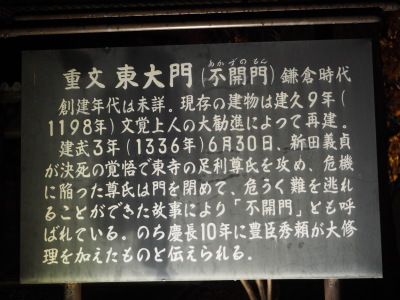 重文 東大門(不開門)鎌倉時代
あかずのもん
創建年代は未詳。現存の建物は建久9年(
1198年)文覚上人の大勧進によって再建。
建武3年(1336年)6月30日、新田義貞
が決死の覚悟で東寺の足利尊氏を攻め、危機
に陥った尊氏は門を閉めて、危うく難を逃れ
ることができた故事により「不開門」とも呼
ばれている。のち慶長10年に豊臣秀頼が大修
理を加えたものと伝えられる。